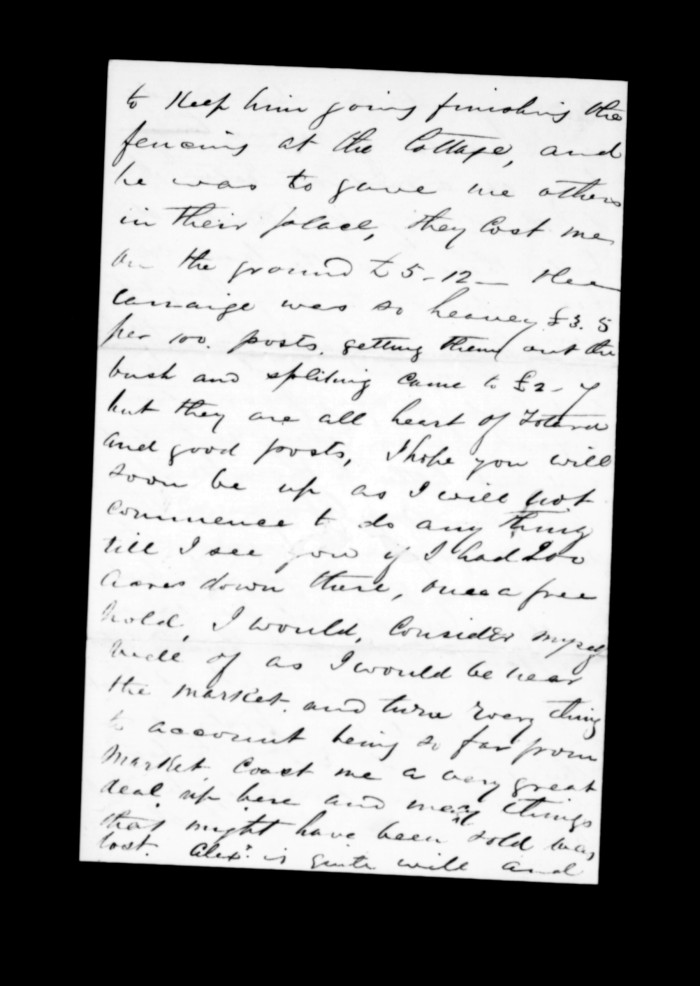 to Keep him going finishing the
fencing at the Cottage, and
he was to gave me others
in their place, they Cost me
on the ground £5-12- the
carraige was so heavey £3.5
per 100. posts. getting them out the
bush and spliting came to £2-7
but they are all heart of Totara
and good posts, I hope you will
soon be up as I will not
commence to do any thing
till I see you if I had 200
Acres down there, once a free
hold, I would, Consider myself
well of as I would be near
the market. and turn every thing
to account being so far from
market, Coast me a very great
deal up here and many things
that might have been sold was
lost. Alexr. is quite will and